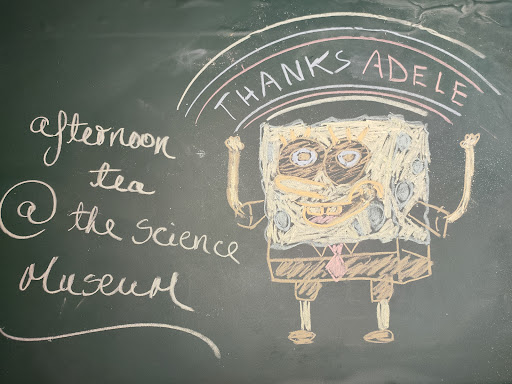 THANKS ADELE
afternoon
tea
@ the science
Museum